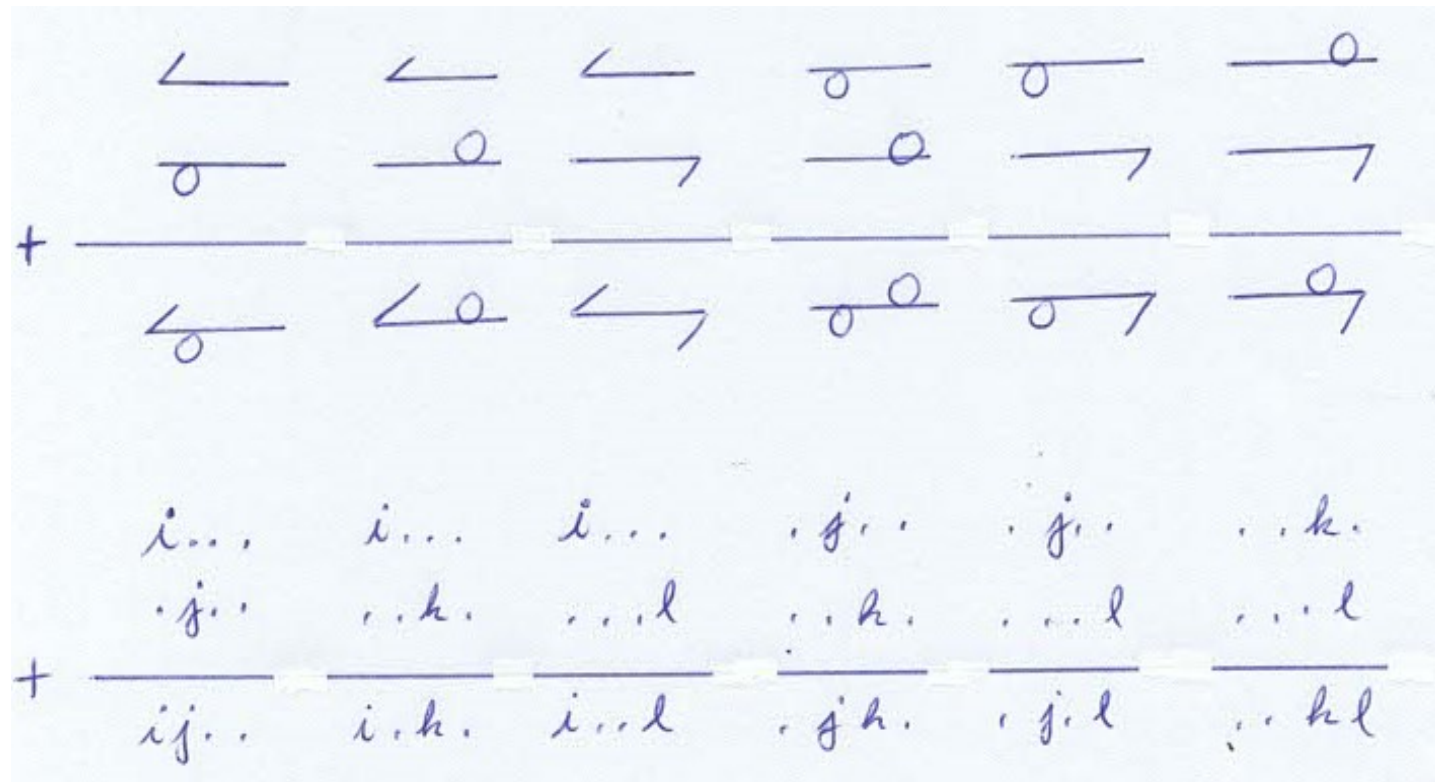 +
i... i... i... .j.. .j.. ..k.
.j.. ..k. ...l ..k. ...l ...l
+
ij.. i.k. i..l .jk. .j.l ..kl